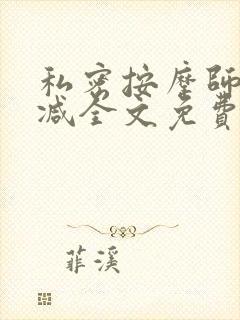 私密按摩師
减全文免費
菲溪